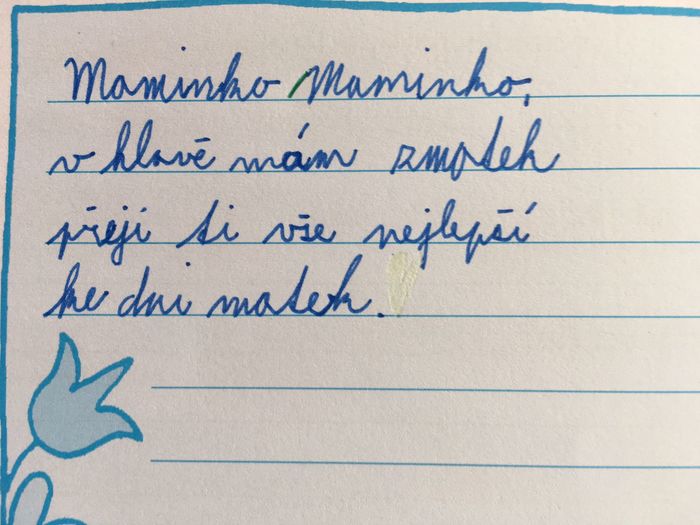 Maminko Maminko,
v hlavě mám zmotek
přeji ti vše nejlepší
ke dni matek.